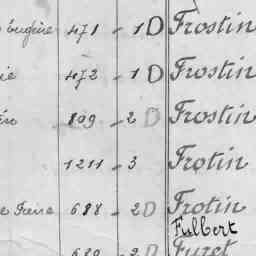 Eugène 471 - 1 D Frostin
ie 472 - 1 D Frostin
én 809 - 2 D Frostin
1211 - 3 Frotin
e Pierre 688 - 2 D Frotin
Fulbert
689 - 2 D Furet